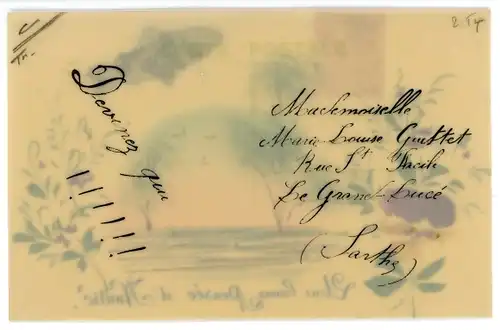 Devinez qui
!!!!!!
Mademoiselle
Marie Louise Guittet
Rue St Facile
Le Grand-Lucé
(Sarthe)